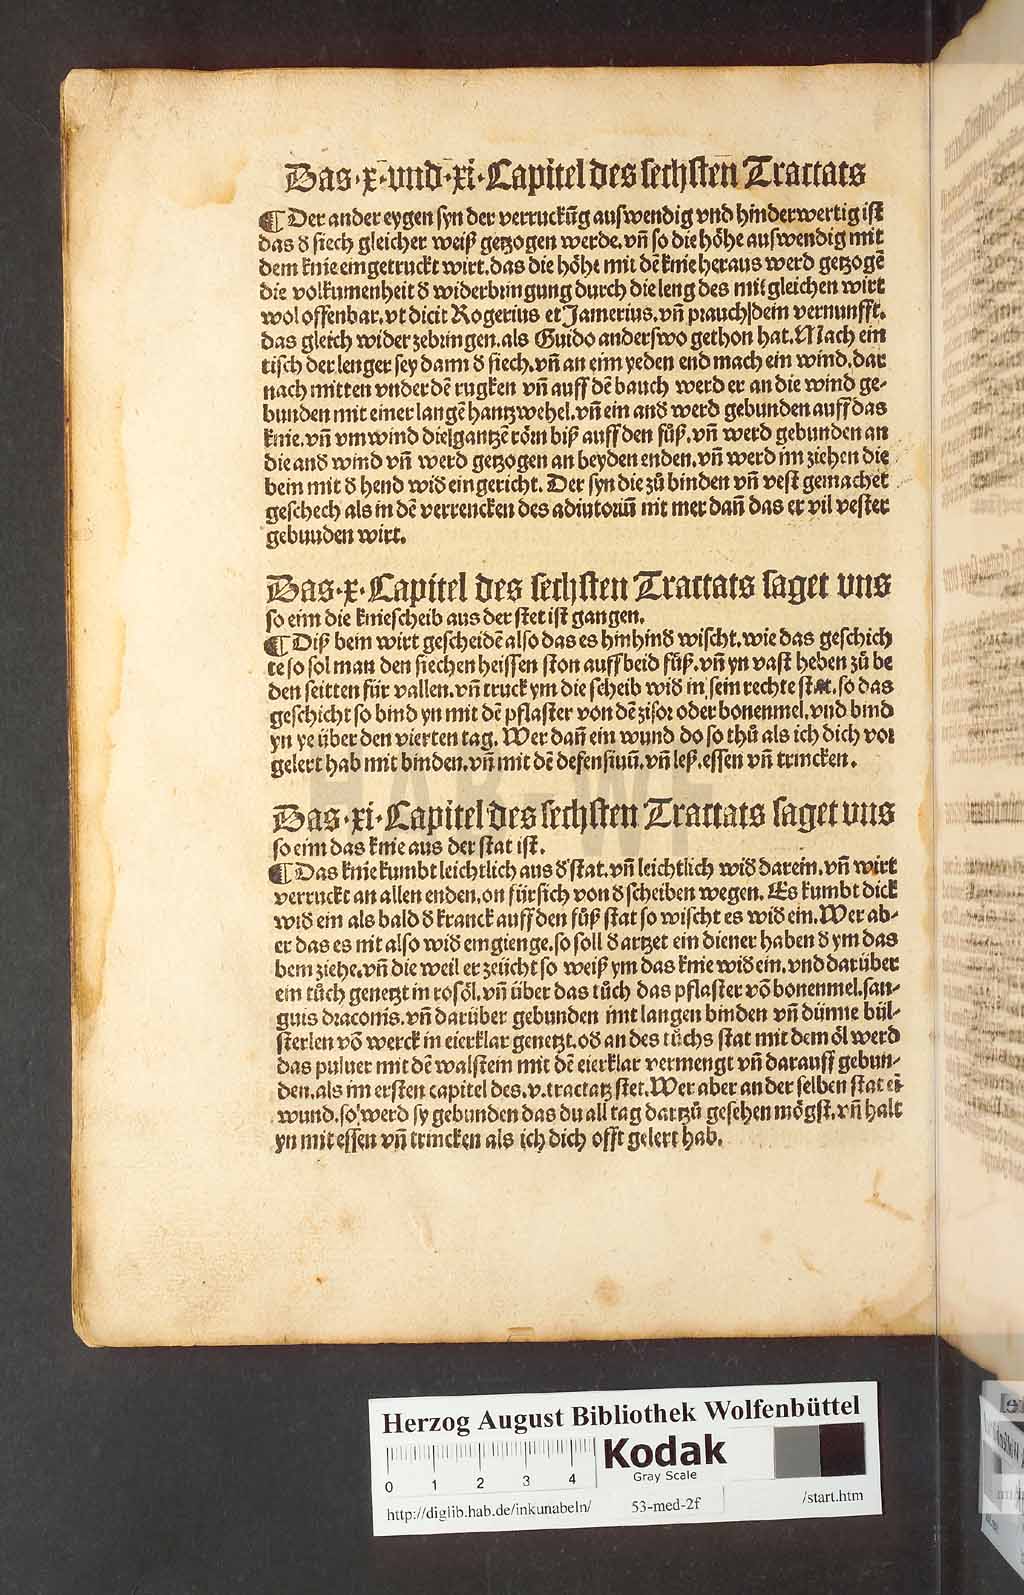 Das·x·vnd·xi·Capitel des sechsten Tractats
¶ Der ander eygen syn der verruckūg auswendig vnd hinderwertig ist
das d siech gleicher weiß getzogen werde. vn̄ so die höhe auswendig mit
dem knie eingetruckt wirt. das die höhe mit dē knie heraus werd getzogē
die volkumenheit d widerbringung durch die leng des mit gleichen wirt
wol offenbar. vt dicit Rogerius et Jamerius. vn̄ prauch dein vernunfft.
das gleich wider zebringen. als Guido anderswo gethon hat. Mach ein
tisch der lenger sey dann d siech. vn̄ an eim yeden end mach ein wind. dar
nach mitten vnder dē rugken vn̄ auff dē bauch werd er an die wind ge-
bunden mit einer langē hantzwehel. vn̄ ein and werd gebunden auff das
knie. vn̄ vmwind die gantzē rörn biß auff den fůß. vn̄ werd gebunden an
die and wind vn̄ werd getzogen an beyden enden. vn̄ werd im ziehen die
bein mit d hend wid eingericht. Der syn die zů binden vn̄ vest gemachet
geschech als in dē verrencken des adiutoriū nit mer dan̄ das er vil vester
gebunden wirt.
Das·x·Capitel des sechsten Tractats saget vns
so eim die kniescheib aus der stet ist gangen.
¶ Diß bein wirt gescheidē also das es hinhind wischt. wie das geschich
te so sol man den siechen heissen ston auff beid fůß. vn̄ yn vast heben zů be
den seitten für vallen. vn̄ truck ym die scheib wid in sein rechte stat. so das
geschicht so bind yn mit dē pflaster von dē zisor oder bonenmel. vnd bind
yn ye über den vierten tag. Wer dan̄ ein wund do so thů als ich dich vor
gelert hab mit binden. vn̄ mit dē defensiuū. vn̄ leß. essen vn̄ trincken.
Das·xi·Capitel des sechsten Tractats saget vns
so eim das knie aus der stat ist.
¶ Das knie kumbt leichtlich aus d stat. vn̄ leichtlich wid darein. vn̄ wirt
verruckt an allen enden. on fürsich von d scheiben wegen. Es kumbt dick
wid ein als bald d kranck auff den fůß stat so wischt es wid ein. Wer ab-
er das es nit also wid eingienge. so soll d artzet ein diener haben d ym das
bein ziehe. vn̄ die weil er zeücht so weiß ym das knie wid ein. vnd darüber
ein tůch genetzt in rosöl. vn̄ über das tůch das pflaster vō bonenmel. san-
guis draconis. vn̄ darüber gebunden mit langen binden vn̄ dünne bül-
sterlen vō werck in eierklar genetzt. od an des tůchs stat mit dem öl werd
das puluer mit dē walstein mit dē eierklar vermengt vn̄ darauff gebun-
den. als im ersten capitel des. v. tractatz stet. Wer aber an der selben stat ein
wund. so werd sy gebunden das du all tag dartzů gesehen mögst. vn̄ halt
yn mit essen vn̄ trincken als ich dich offt gelert hab.
HAB-WF
Herzog August Bibliothek Wolfenbüttel
Kodak
Gray Scale
0 1 2 3 4
http://diglib.hab.de/inkunabeln/ 53-med-2f /start.htm